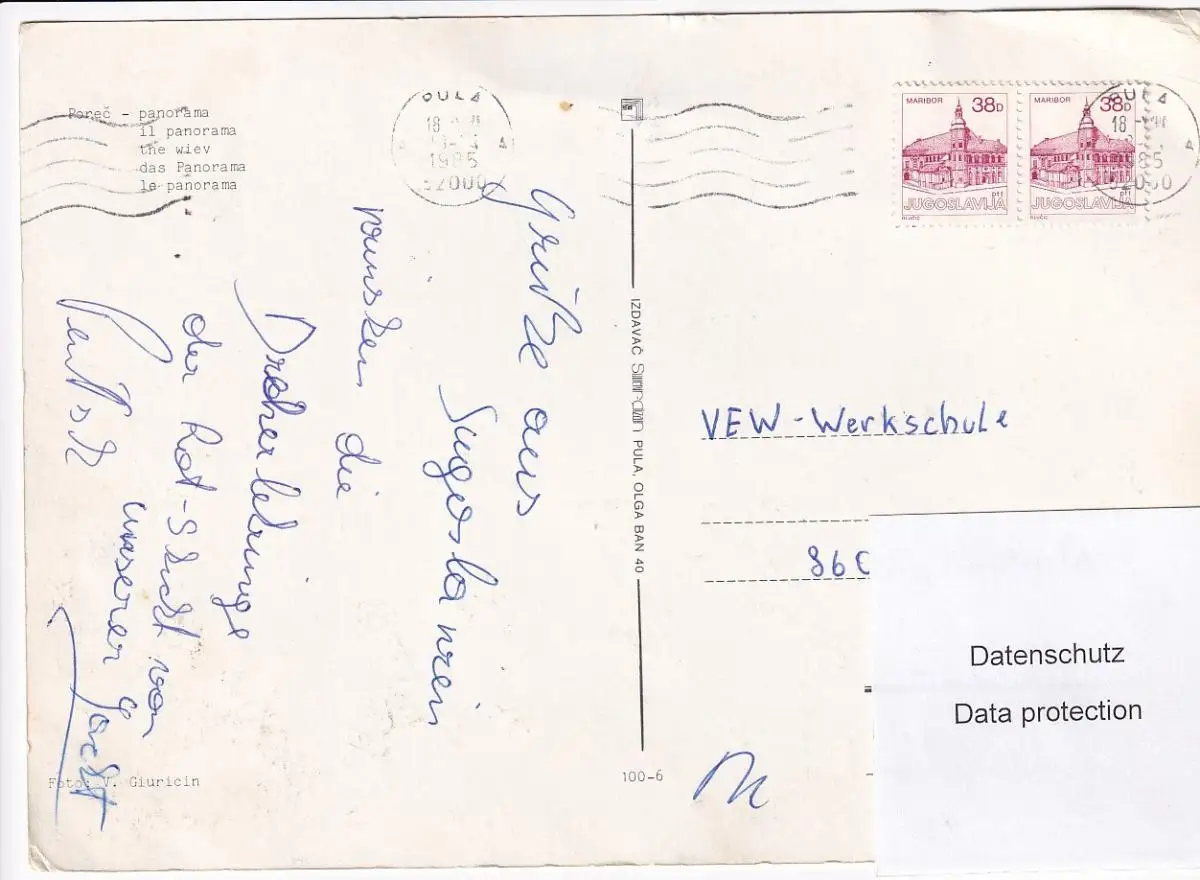 Poreč - panorama
il panorama
the wiev
das Panorama
le panorama
PULA
18
1985
52000
MARIBOR 38D
PTT
JUGOSLAVIJA
MARIBOR 38D
PTT
JUGOSLAVIJA
PULA
18
85
52000
Grüße aus
Jugoslawien
wünschen die
Dreherlehringe
der Rot-Schicht von
unserer Yacht
IZDAVAČ PULA, OLGA BAN 40
VEW-Werkschule
860
Datenschutz
Data protection
Foto: V. Giuricin
100-6